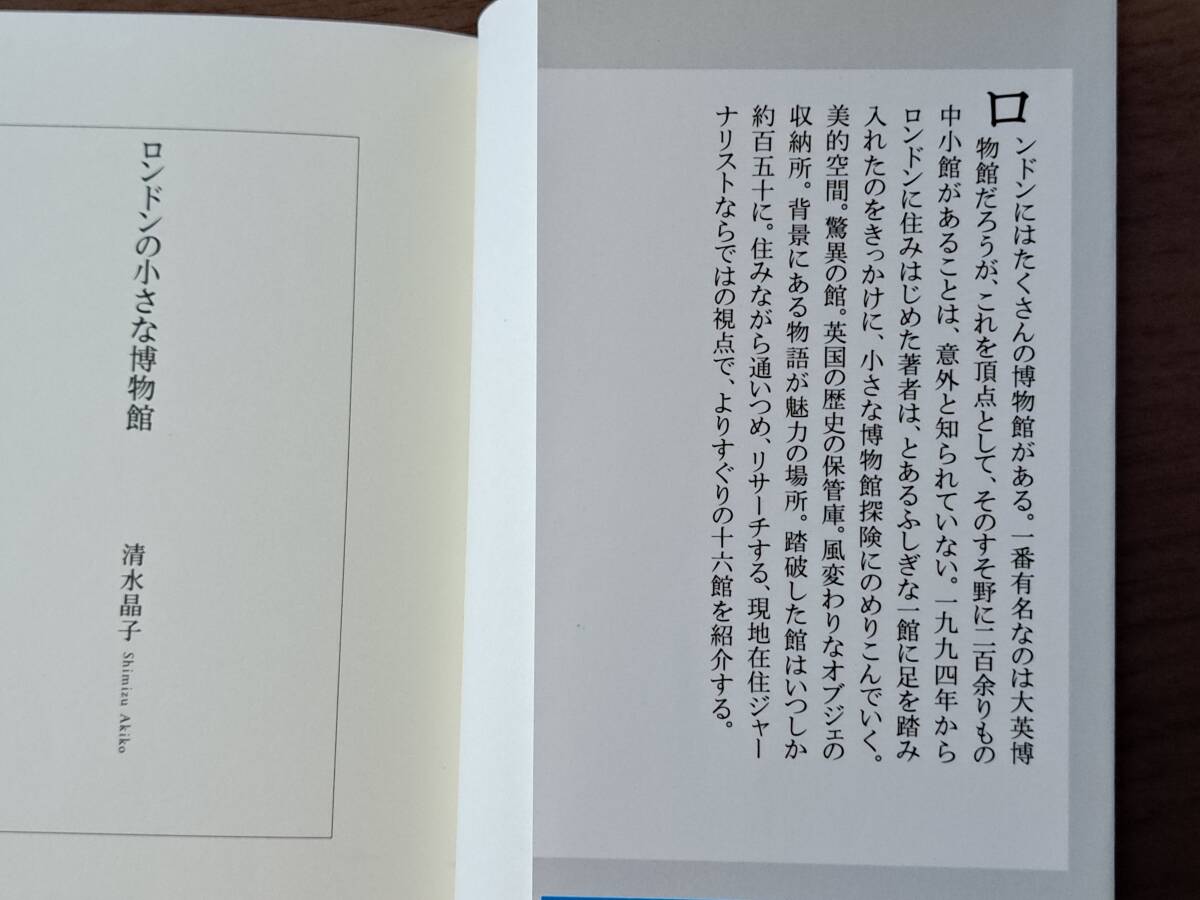 ロンドンの小さな博物館
清水晶子 Shimizu Akiko
ロンドンにはたくさんの博物館がある。一番有名なのは大英博
物館だろうが、これを頂点として、そのすそ野に二百余りもの
中小館があることは、意外と知られていない。一九九四年から
ロンドンに住みはじめた著者は、とあるふしぎな一館に足を踏み
入れたのをきっかけに、小さな博物館探険にのめりこんでいく。
美的空間。驚異の館。英国の歴史の保管庫。風変わりなオブジェの
収納所。背景にある物語が魅力の場所。踏破した館はいつしか
約百五十に。住みながら通いつめ、リサーチする、現地在住ジャー
ナリストならではの視点で、よりすぐりの十六館を紹介する。